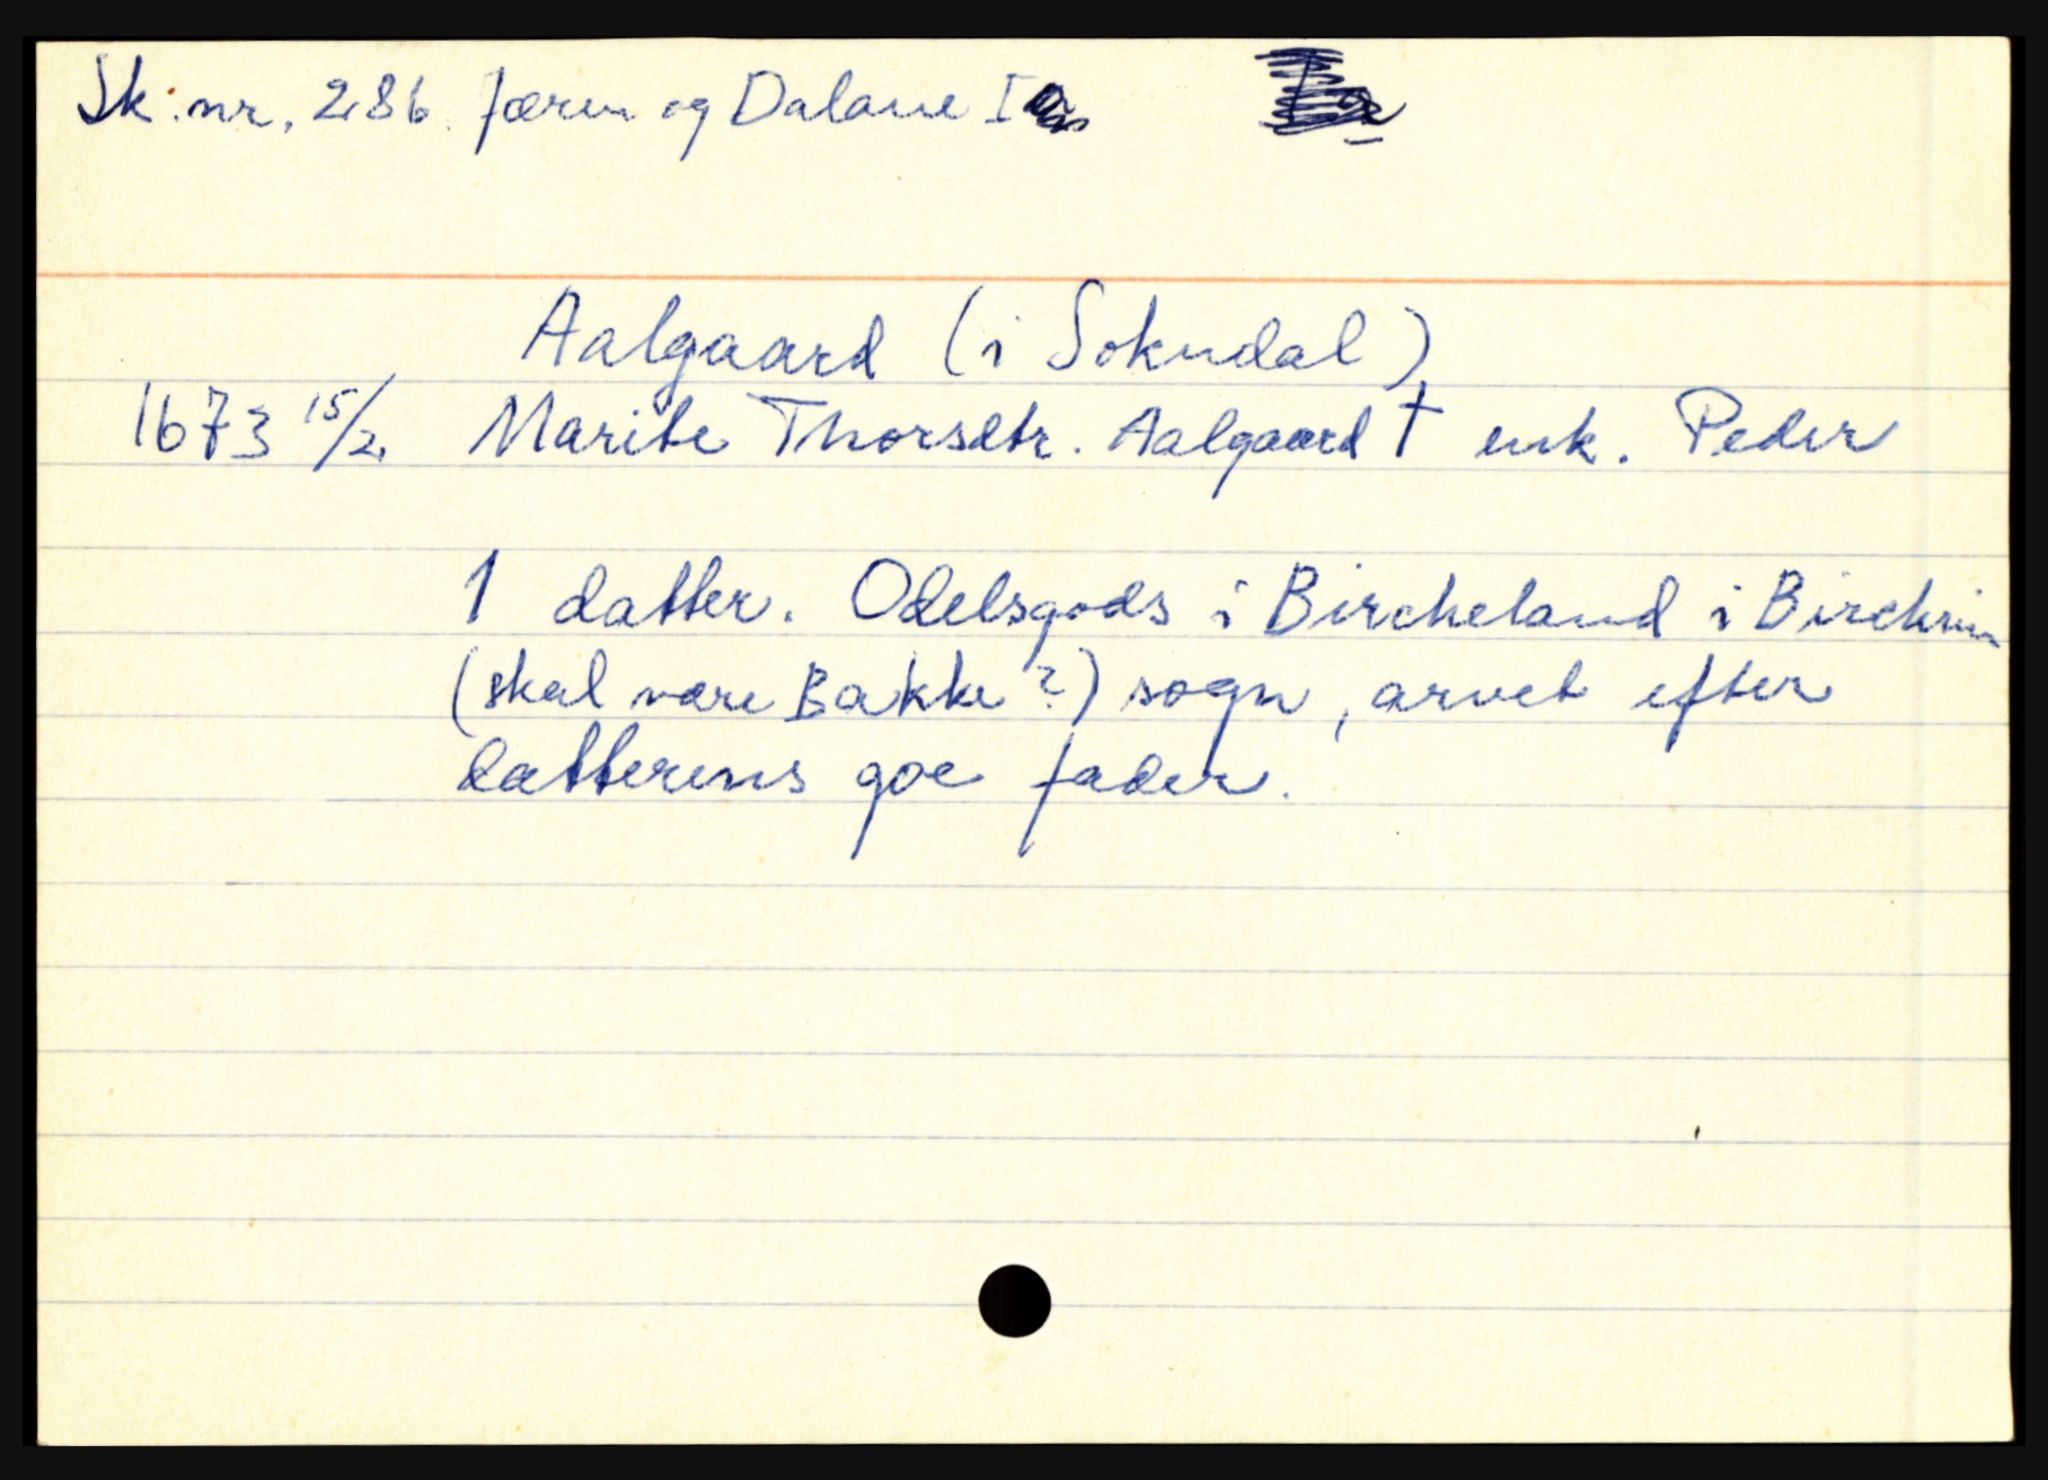 Sk. nr. 286. Jæren og Dalane I
Aalgaard (i Sokndal)
1673 15/2 Marite Thorsdtr. Aalgaard † enk. Peder
1 datter. Odelsgods i Bircheland i Birchrim
(skal være Bakke?) sogn, arvet efter
datterens goe fader.